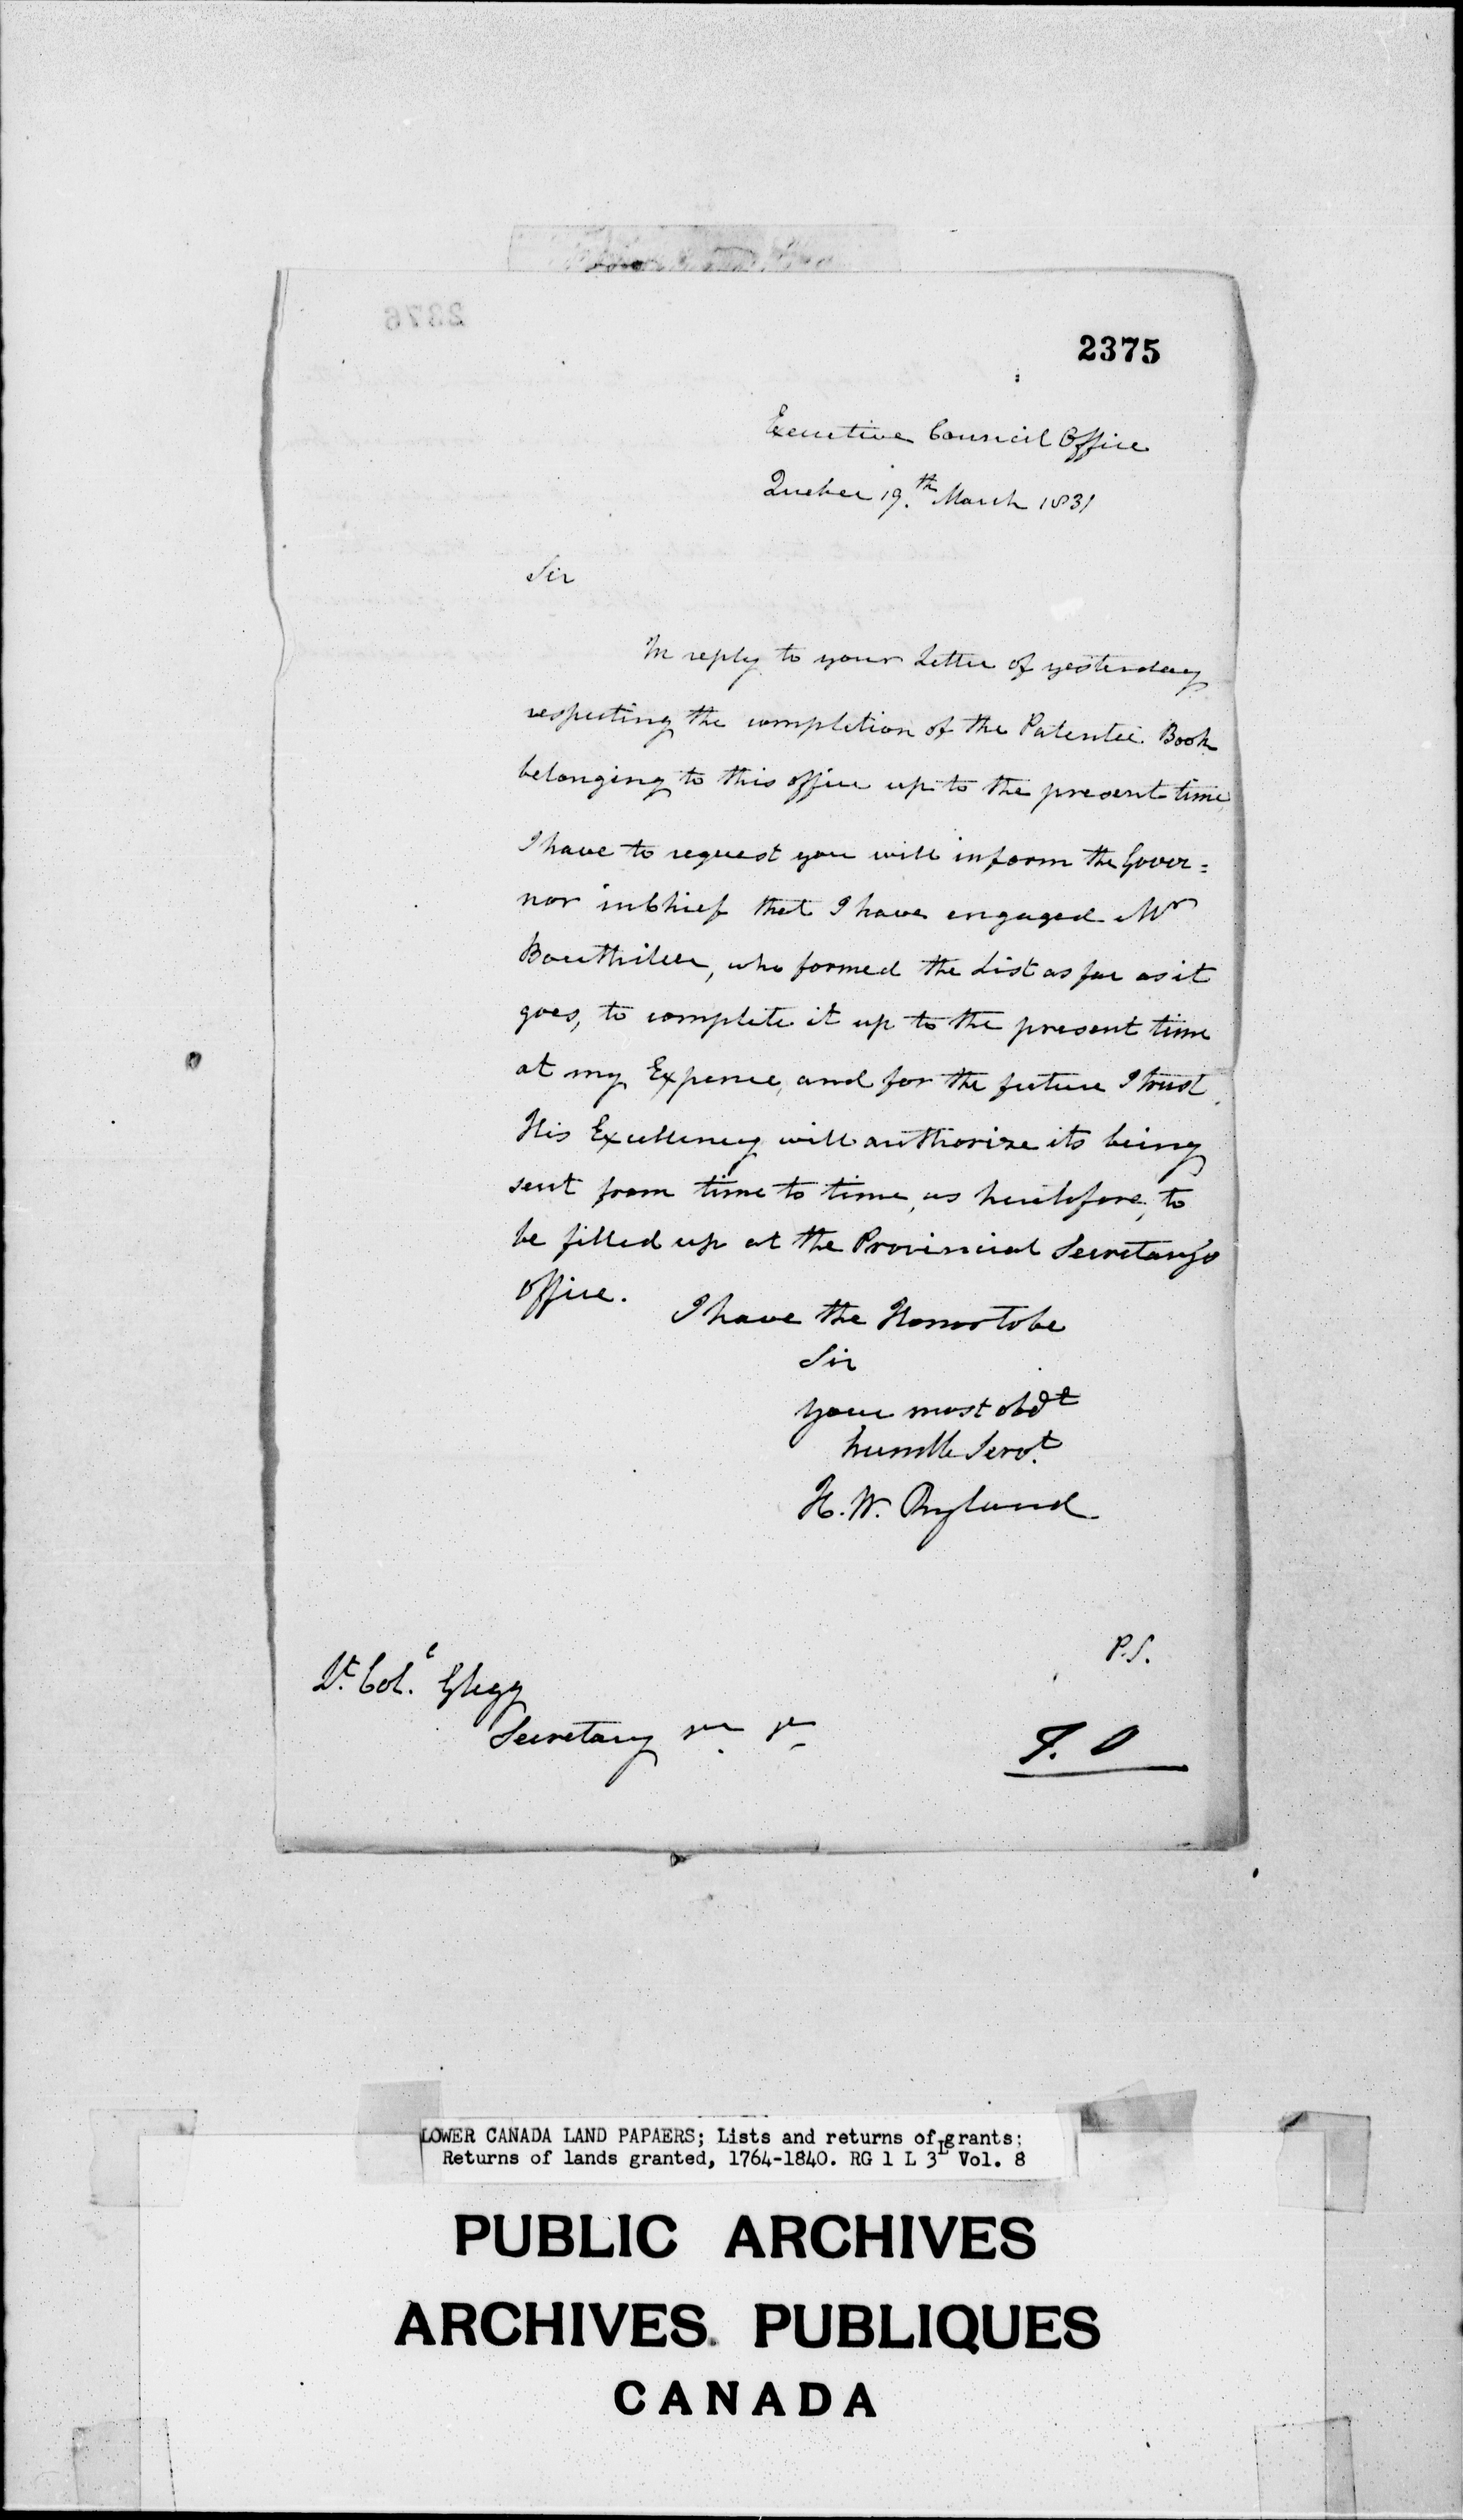 2376
2375
Executive Council Office
Quebec 19.th March 1831
Sir
In reply to your Letter of yesterday
respecting the completion of the Patentee Book
belonging to this office up to the present time,
I have to request you will inform the Gover=
nor in Chief that I have engaged Mr
Bouthiller, who formed the List as far as it
goes, to complete it up to the present time
at my Expence, and for the future I trust
His Excellency will authorize its being
sent from time to time, as heretofore, to
be filled up at the Provincial Secretary's
Office.
I have the Honor to be
Sir
your most obdt
humble Servt.
H. W. Ryland
P.S.
Lt. Col. Glegg
Secretary
T. O
LOWER CANADA LAND PAPAERS; Lists and returns of grants;
Returns of lands granted, 1764-1840. RG 1 L 3L Vol. 8
PUBLIC ARCHIVES
ARCHIVES PUBLIQUES
CANADA